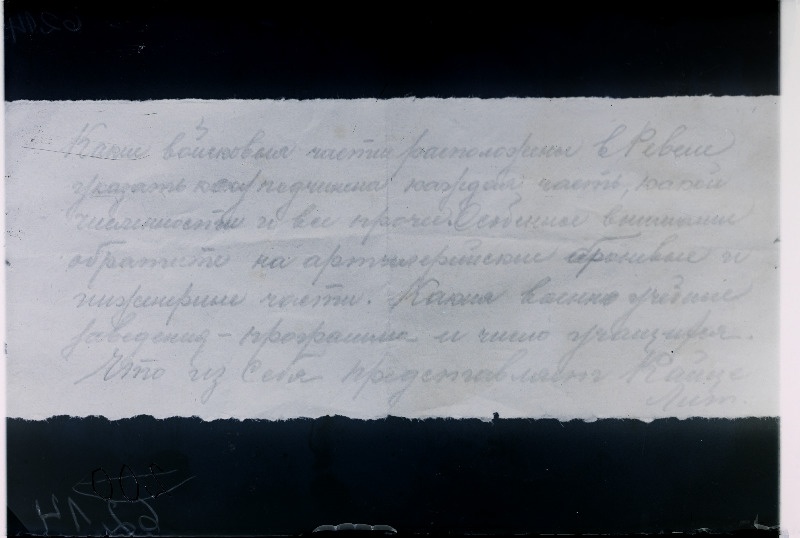 Какие войсковыя части расположены в Ревеле
указать кому подчинена каждая часть, какой
численности и все прочее. Особенное внимание
обратите на артиллерийские броневые и
инженерные части. Какия военно учебные
заведения – программа и число учащихся.
Что из себя представляет
6214